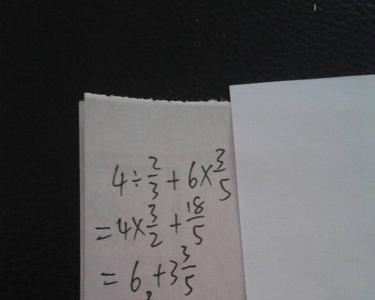 4÷2/3+6×3/5
=4×3/2+18/5
=6+3 3/5